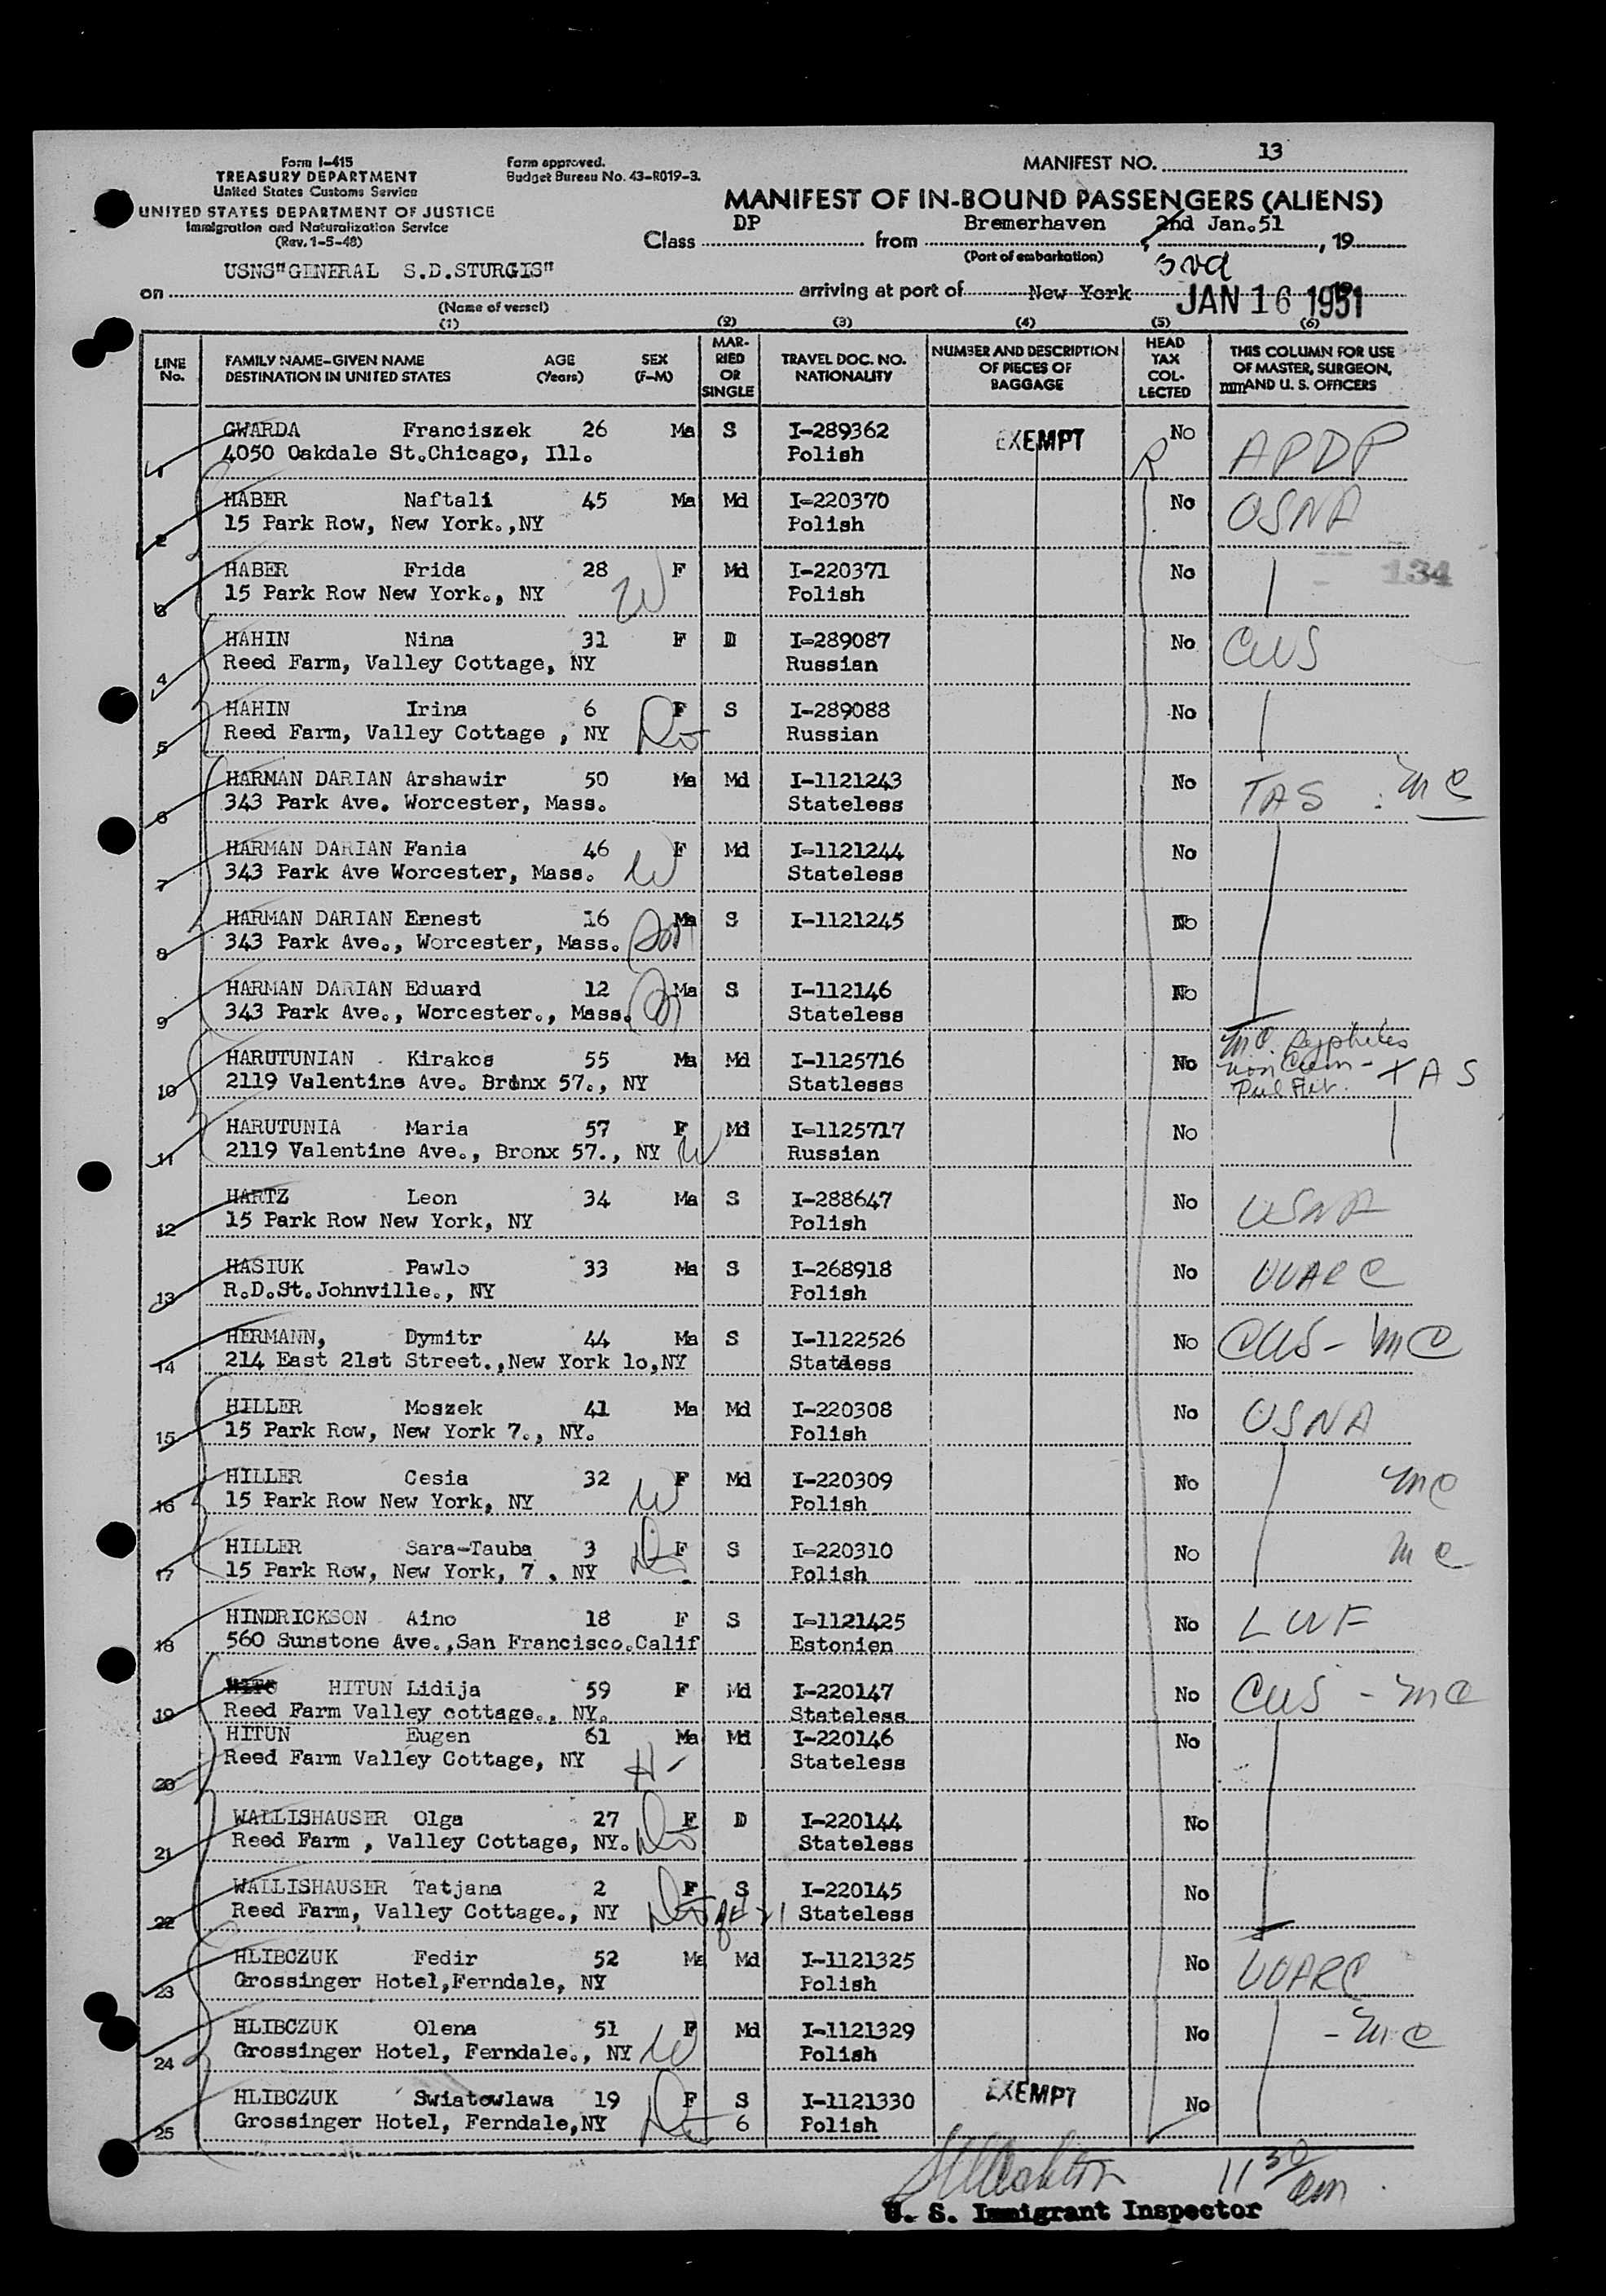 Form I-415
TREASURY DEPARTMENT
United States Customs Service
UNITED STATES DEPARTMENT OF JUSTICE
Immigration and Naturalization Service
(Rev. 1-5-48)
Form approved.
Budget Bureau No. 43-R019-3.
MANIFEST NO. 13
MANIFEST OF IN-BOUND PASSENGERS (ALIENS)
Class DP from Bremerhaven, 2nd Jan.51, 19
(Port of embarkation) 3rd
on USNS"GINERAL S.D.STURGIS" arriving at port of New York JAN 16 1951
(Name of vessel)
(1) (2) (3) (4) (5) (6)
LINE No. FAMILY NAME-GIVEN NAME DESTINATION IN UNITED STATES AGE (Years) SEX (F-M) MARRIED OR SINGLE TRAVEL DOC. NO. NATIONALITY NUMBER AND DESCRIPTION OF PIECES OF BAGGAGE HEAD TAX COLLECTED THIS COLUMN FOR USE OF MASTER, SURGEON, AND U. S. OFFICERS
1 GWARDA Franciszek 26 Ma S I-289362 EXEMPT No APDP
4050 Oakdale St.Chicago, Ill. Polish
2 HABER Naftali 45 Ma Md I-220370 No USNA
15 Park Row, New York.,NY Polish
3 HABER Frida 28 W F Md I-220371 No 134
15 Park Row New York., NY Polish
4 HAHIN Nina 31 F D I-289087 No CWS
Reed Farm, Valley Cottage, NY Russian
5 HAHIN Irina 6 F S I-289088 No
Reed Farm, Valley Cottage , NY Russian
6 HARMAN DARIAN Arshawir 50 Ma Md I-1121243 No TAS MC
343 Park Ave. Worcester, Mass. Stateless
7 HARMAN DARIAN Fania 46 W F Md I-1121244 No
343 Park Ave Worcester, Mass. Stateless
8 HARMAN DARIAN Ernest 16 Ma S I-1121245 No
343 Park Ave., Worcester, Mass.
9 HARMAN DARIAN Eduard 12 Ma S I-112146 No
343 Park Ave., Worcester., Mass. Stateless
10 HARUTUNIAN Kirakos 55 Ma Md I-1125716 No MC. Syphilis non TAS
2119 Valentine Ave. Bronx 57., NY Statlesss
11 HARUTUNIA Maria 57 F Md I-1125717 No
2119 Valentine Ave., Bronx 57., NY W Russian
12 HARTZ Leon 34 Ma S I-288647 No USNA
15 Park Row New York, NY Polish
13 HASIUK Pawlo 33 Ma S I-268918 No UUARC
R.D.St.Johnville., NY Polish
14 HERMANN, Dymitr 44 Ma S I-1122526 No CWS - MC
214 East 21st Street.,New York lo,NY Stateless
15 HILLER Moszek 41 Ma Md I-220308 No USNA
15 Park Row, New York 7., NY. Polish
16 HILLER Cesia 32 W F Md I-220309 No MC
15 Park Row New York, NY Polish
17 HILLER Sara-Tauba 3 F S I-220310 No MC
15 Park Row, New York, 7 , NY Polish
18 HINDRICKSON Aino 18 F S I-1121425 No LWF
560 Sunstone Ave.,San Francisco.Calif Estonien
19 HITUN Lidija 59 F Md I-220147 No CWS - MC
Reed Farm Valley cottage., NY. Stateless
20 HITUN Eugen 61 Ma Md I-220146 No
Reed Farm Valley Cottage, NY H- Stateless
21 WALLISHAUSER Olga 27 F D I-220144 No
Reed Farm , Valley Cottage, NY. Stateless
22 WALLISHAUSER Tatjana 2 F S I-220145 No
Reed Farm, Valley Cottage., NY Stateless
23 HLIBCZUK Fedir 52 Ma Md I-1121325 No UUARC
Grossinger Hotel,Ferndale, NY Polish
24 HLIBCZUK Olena 51 F Md I-1121329 No - MC
Grossinger Hotel, Ferndale., NY W Polish
25 HLIBCZUK Swiatowlawa 19 F S I-1121330 EXEMPT No
Grossinger Hotel, Ferndale,NY 6 Polish
11 30 am
U. S. Immigrant Inspector